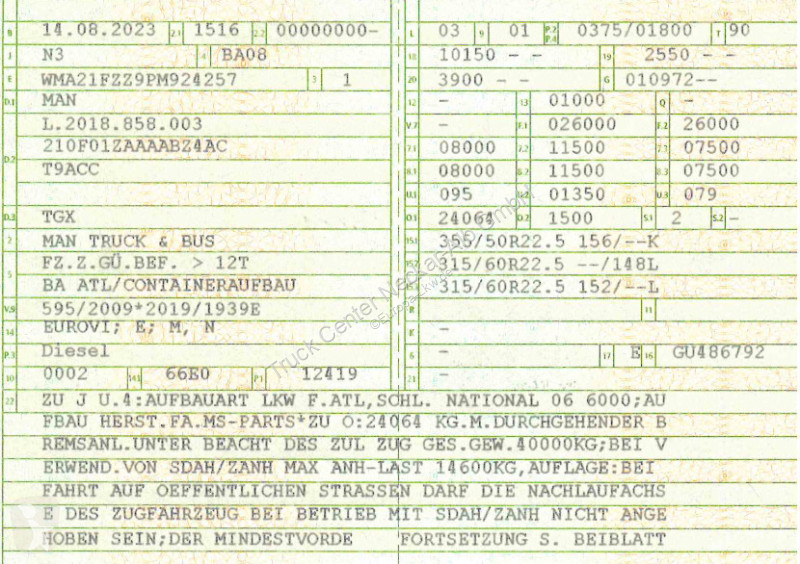 B 14.08.2023 2.1 1516 2.2 00000000-
J N3 4 BA08
E WMA21FZZ9PM924257 3 1
D.1 MAN
D.2 L.2018.858.003
210F01ZAAAABZ4AC
T9ACC
D.3 TGX
2 MAN TRUCK & BUS
5 FZ.Z.GÜ.BEF. > 12T
BA ATL/CONTAINERAUFBAU
V.9 595/2009*2019/1939E
14 EUROVI; E; M, N
P.3 Diesel
10 0002 14.1 66E0 P.1 12419
L 03 9 01 P.2 P.4 0375/01800 T 90
18 10150 - - 19 2550 - -
20 3900 - - G 010972--
12 - 13 01000 Q -
V.7 - F.1 026000 F.2 26000
7.1 08000 7.2 11500 7.3 07500
8.1 08000 8.2 11500 8.3 07500
U.1 095 U.2 01350 U.3 079
O.1 24064 O.2 1500 S.1 2 S.2 -
15.1 355/50R22.5 156/--K
15.2 315/60R22.5 --/148L
15.3 315/60R22.5 152/--L
R 11
K -
6 - 17 E 16 GU486792
21 -
22 ZU J U.4:AUFBAUART LKW F.ATL,SCHL. NATIONAL 06 6000;AU
FBAU HERST.FA.MS-PARTS*ZU O:24064 KG.M.DURCHGEHENDER B
REMSANL.UNTER BEACHT DES ZUL ZUG GES.GEW.40000KG;BEI V
ERWEND.VON SDAH/ZANH MAX ANH-LAST 14600KG,AUFLAGE:BEI
FAHRT AUF OEFFENTLICHEN STRASSEN DARF DIE NACHLAUFACHS
E DES ZUGFAHRZEUG BEI BETRIEB MIT SDAH/ZANH NICHT ANGE
HOBEN SEIN;DER MINDESTVORDE FORTSETZUNG S. BEIBLATT
Truck Center Meckatal GmbH